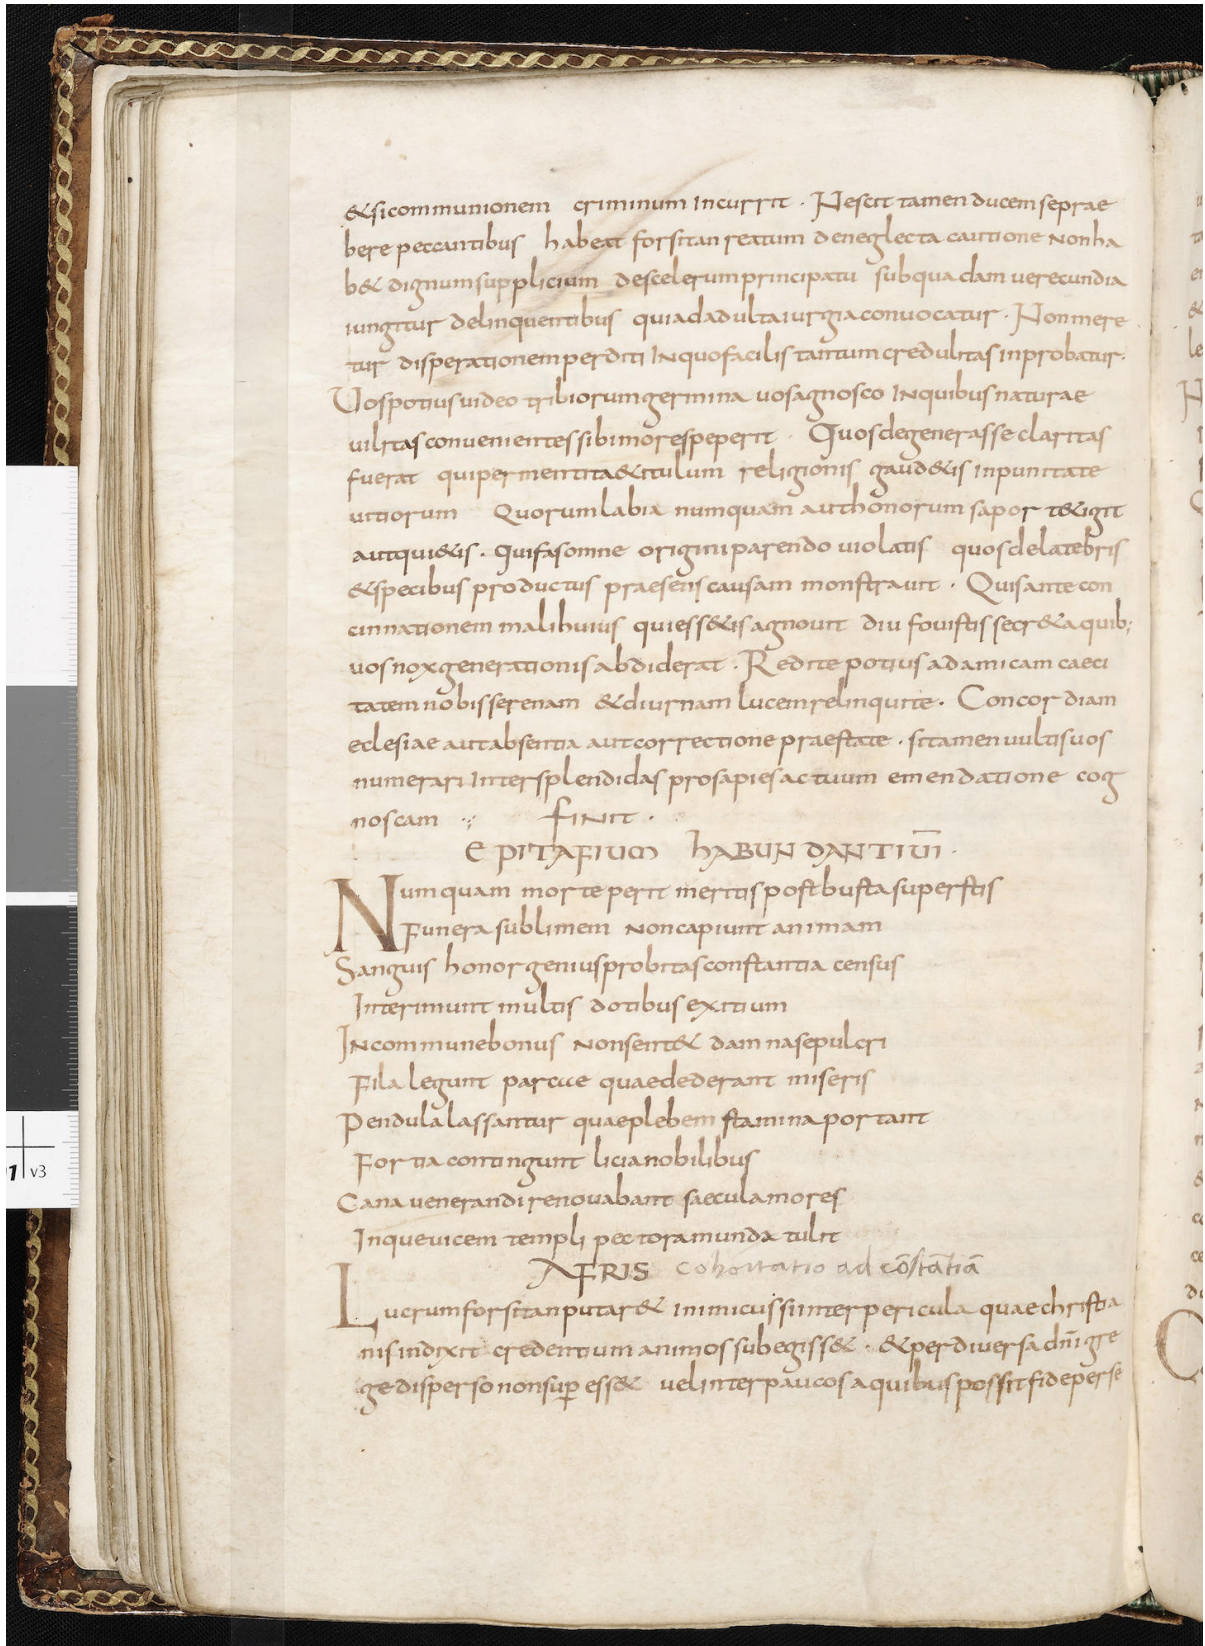 &sicommunionem criminum incurrit . Nescit tamen ducem se prae
bere peccantibus habeat forsitan reatum de neglecta cautione non ha
b& dignum supplicium de scelerum principatu sub quadam uerecundia
iungitur delinquentibus qui ad adulta iurgia conuocatur . Non mere
tur disperationem perditi in quo facilis tantum credulitas inprobatur .
Uos potius uideo tribiorum germina uos agnosco in quibus naturae
uilitas conuenientes sibi mores peperit . Quos degenerasse claritas
fuerat qui per mentita &itulum religionis gaud&is inpunitate
uitiorum quorum labia numquam aut honorum sapor t&igit
aut qui&is . qui fas omne origini parendo uiolatis quos de latebris
& specibus productus praesens causam monstrauit . Quis ante con
cinnationem mali huius qui ess&is agnouit diu fouistis secr&a quib;
uos nox generationis abdiderat . Redite potius ad amicam caeci
tatem nobis serenam & diurnam lucem relinquite . Concordiam
eclesiae aut absentia aut correctione praestate . si tamen uultis uos
numerari inter splendidas prosapies actuum emendatione cog
noscam .,. FINIT .
EPITAFIUM HABUNDANTIU̅ .
Numquam morte perit meritis post busta superstis
Funera sublimem non capiunt animam
Sanguis honor genius probitas constantia census
Interimunt multis dotibus exitium
In commune bonus non sent& damna sepulcri
Fila legunt parcae quae dederant miseris
Pendula lassantur quae plebem stamina portant
Fortia contingunt licia nobilibus
Cana uenerandi renouabant saecula mores
Inque uicem templi pectora munda tulit
AFRIS cohortatio ad co̅sta̅tia̅
Lucrum forsitan putar& inimicus si inter pericula quae christia
nis indixit credentium animos subegiss& . & per diuersa dn̅i gre
ge disperso non sup̲ ess& uel inter paucos a quibus possit fide perse